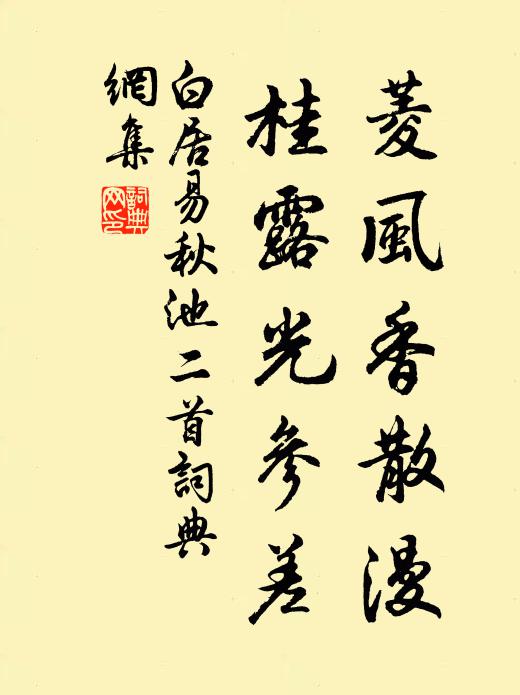 菱風香散漫
桂露光參差
白居易秋池二首詞典
網集
詞典
网印